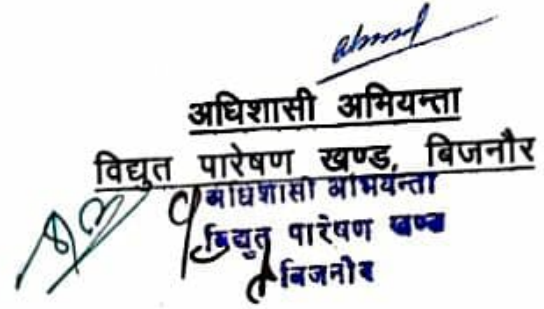 अधिशासी अभियन्ता
विद्युत पारेषण खण्ड, बिजनौर
अधिशासी अभियन्ता
विद्युत पारेषण खण्ड
बिजनौर